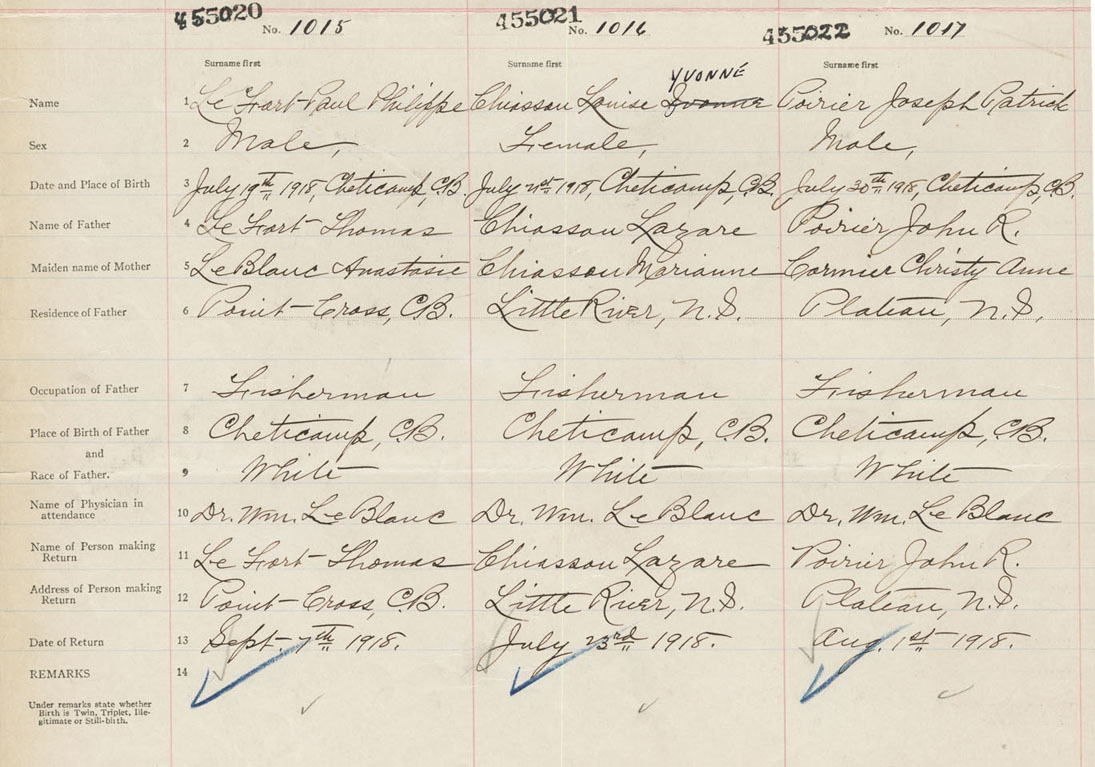 455020 455021 455022
No. 1015 No. 1016 No. 1017
Surname first Surname first Surname first
YVONNE
Name 1 Le Fort Paul Philippe Chiasson Louise Yvonne Poirier Joseph Patrick
Sex 2 Male, Female, Male,
Date and Place of Birth 3 July 19th 1918, Cheticamp, C.B. July 21st 1918, Cheticamp, C.B. July 30th 1918, Cheticamp, C.B.
Name of Father 4 Le Fort Thomas Chiasson Lazare Poirier John R.
Maiden name of Mother 5 LeBlanc Anastasie Chiasson Marianne Cormier Christy Anne
Residence of Father 6 Point-Cross, C.B. Little River, N.S. Plateau, N.S.
Occupation of Father 7 Fisherman Fisherman Fisherman
Place of Birth of Father 8 Cheticamp, C.B. Cheticamp, C.B. Cheticamp, C.B.
and
Race of Father. 9 White White White
Name of Physician in
attendance 10 Dr. Wm. LeBlanc Dr. Wm. LeBlanc Dr. Wm. LeBlanc
Name of Person making
Return 11 Le Fort Thomas Chiasson Lazare Poirier John R.
Address of Person making
Return 12 Point-Cross, C.B. Little River, N.S. Plateau, N.S.
Date of Return 13 Sept. 7th 1918. July 23rd 1918. Aug. 1st 1918.
REMARKS 14
Under remarks state whether
Birth is Twin, Triplet, Ille-
gitimate or Still-birth.